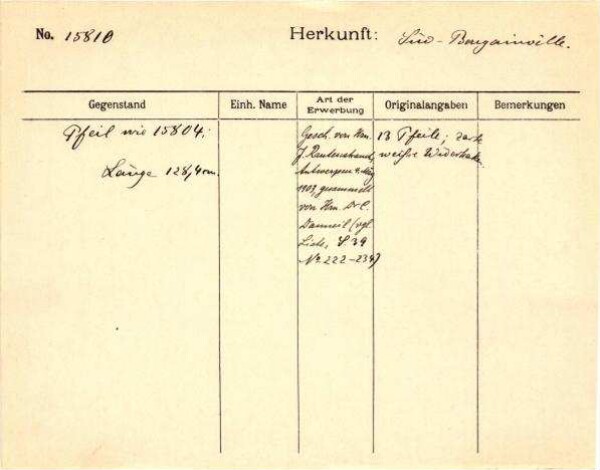 No. 15810 Herkunft: Süd-Bougainville.
Gegenstand Einh. Name Art der Erwerbung Originalangaben Bemerkungen
Pfeil wie 15804;
Länge 128,4 cm.
Gesch. von Hrn.
J. Rautenstrauch,
Antwerpen 4. May
1903, gesammelt
von Hrn. Dr. C.
Danneil (vgl.
Liste, S. 39
No 222–234)
13 Pfeile; zarte
weiße Widerhaken